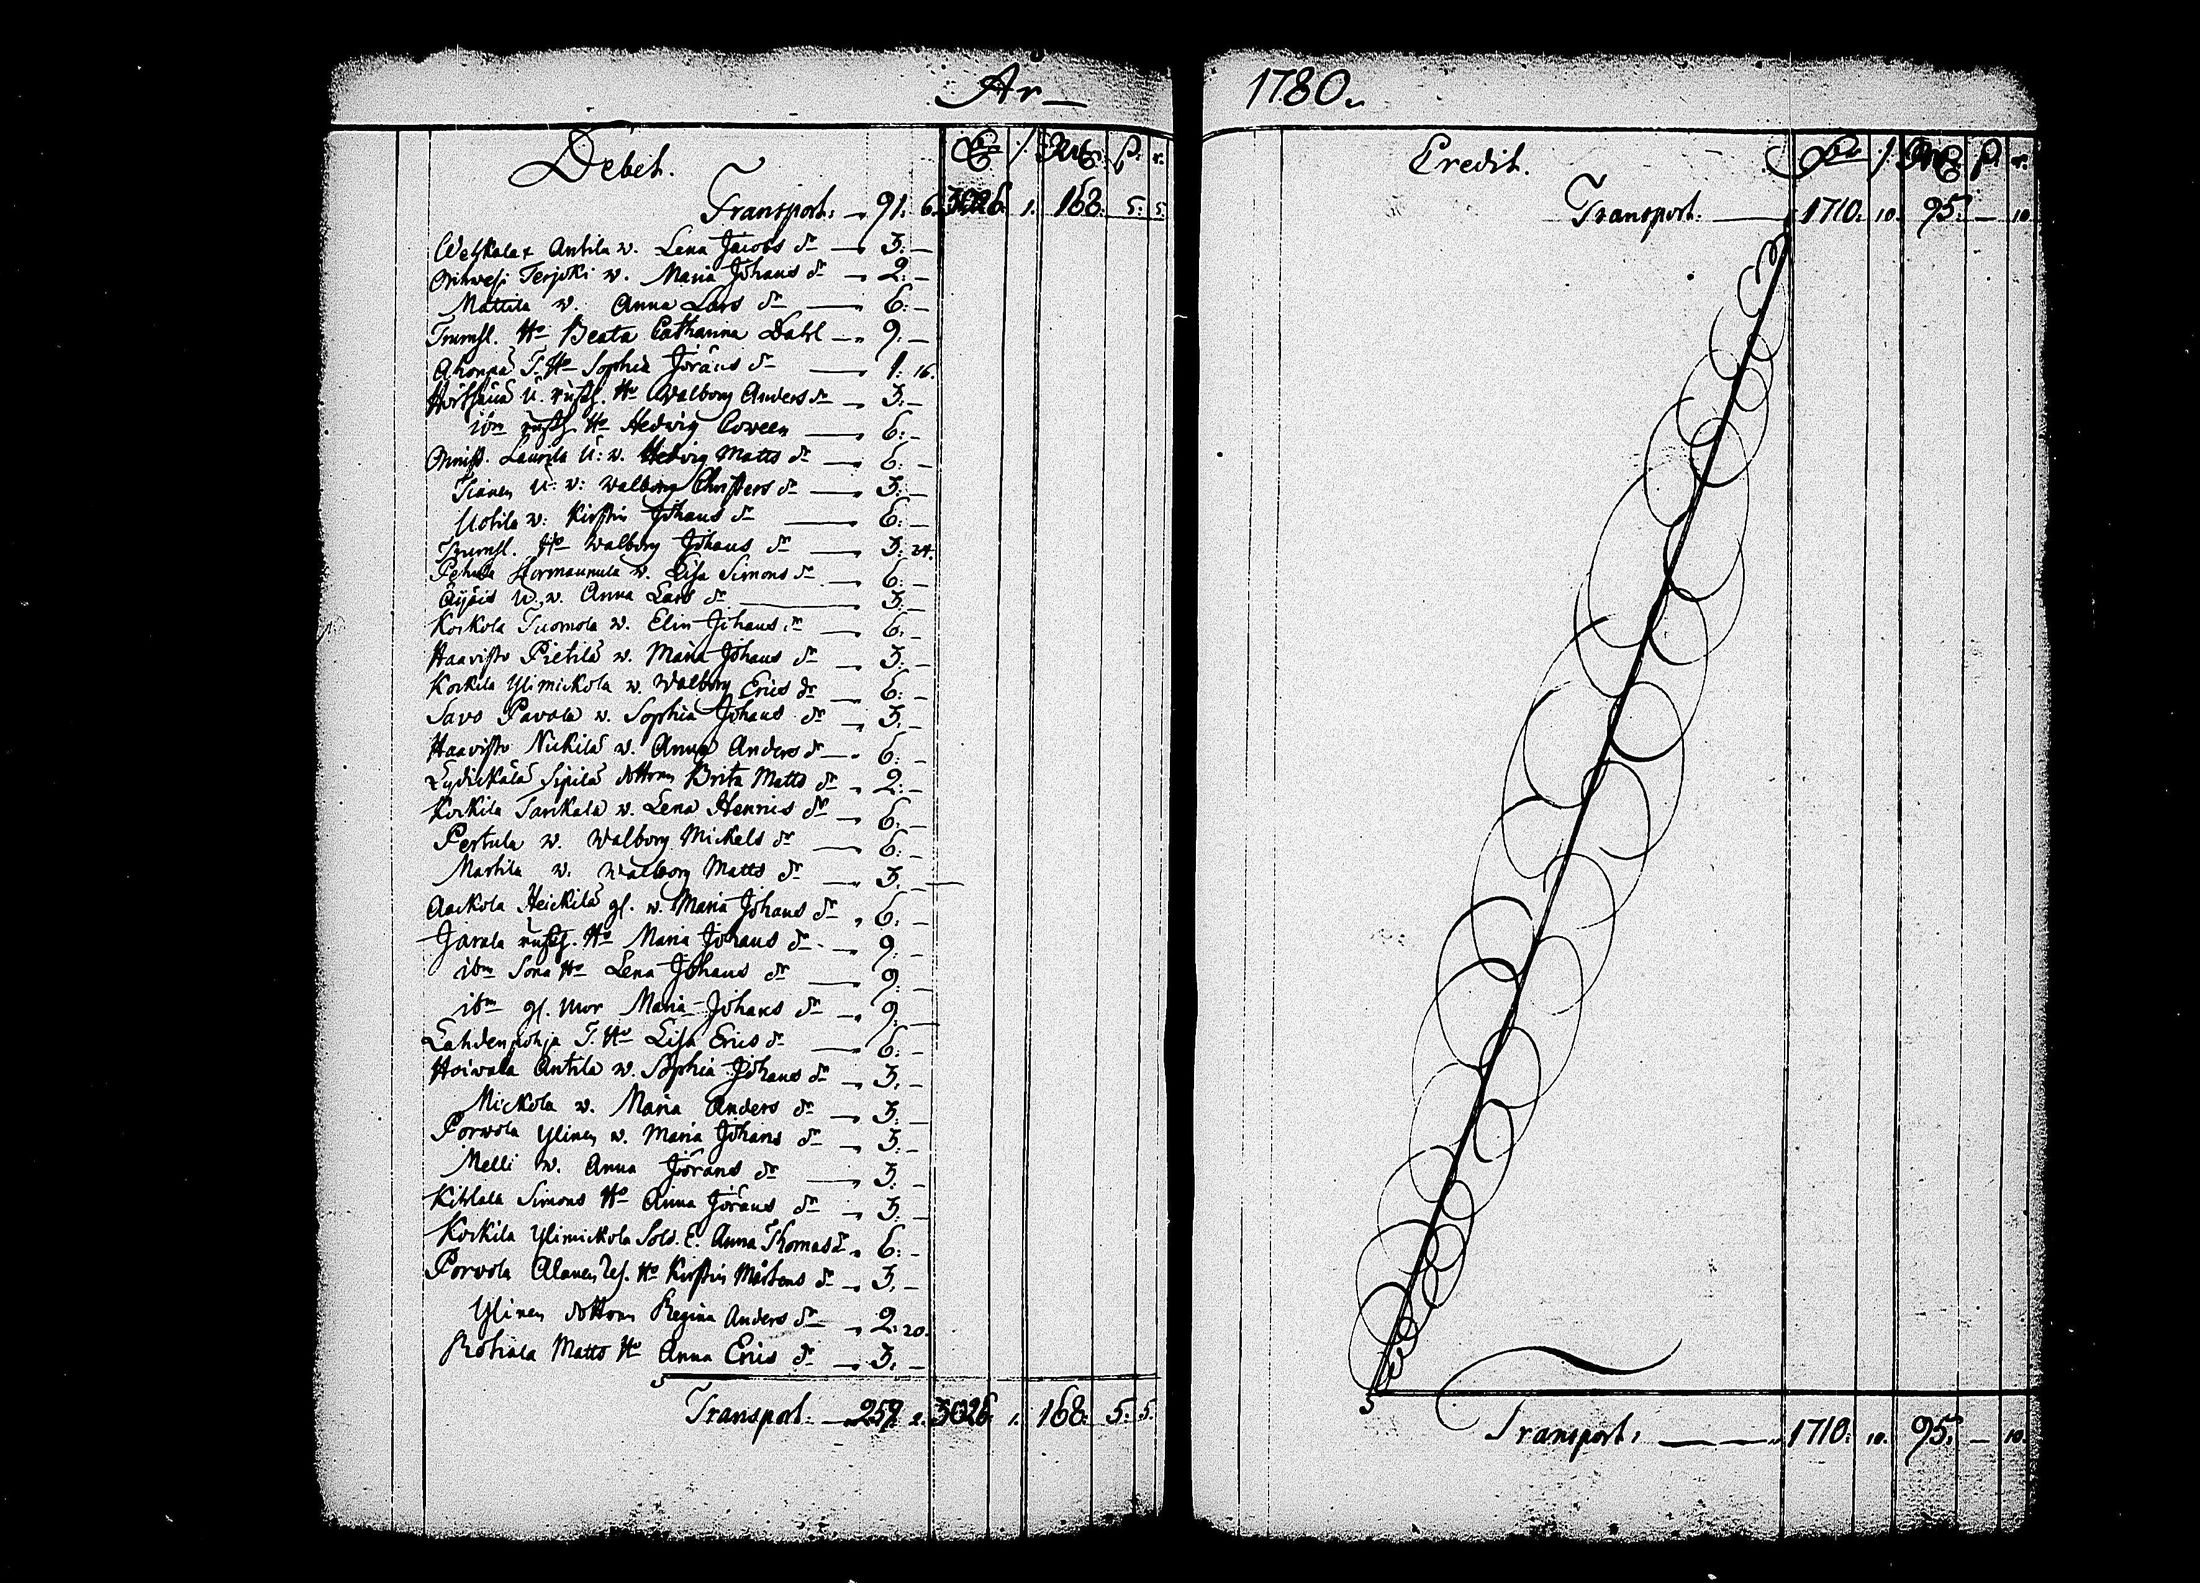 År
Debet.
Transport. 91. 6. 3026. 1. 168. 5. 5.
Antila v. Lena Jacobs dr 3. —
v. Maria Johans dr 2. —
Mattila v. Anna Lars dr 6. —
Hu Beata Catharina Dahl 9. —
T. Hu Sophia Jörans dr 1. 16.
Hu Walborg Anders dr 3. —
ibm rusth. Hu Hedwig 6. —
Laurila U. v. Hedvig Matts dr 6. —
U. v. Walborg Christers dr 3. —
Uotila v. Kirstin Johans dr 6. —
Hu Walborg Johans dr 3. 24.
v. Lisa Simons dr 6. —
Äijäis U. v. Anna Lars dr 3. —
Kockola Tuomola v. Elin Johans dr 6. —
Haavisto Pietilä v. Maria Johans dr 3. —
Kockila Ylimickola v. Walborg Erics dr 6. —
Savo Pavola v. Sophia Johans dr 3. —
Haavisto Nickilä v. Anna Anders dr 6. —
Sipilä dottren Brita Matts dr 2. —
Kockila v. Lena Henrics dr 6. —
Pertula v. Walborg Michels dr 6. —
Martila v. Walborg Matts dr 3. —
Aackola Heickilä gl. v. Maria Johans dr 6. —
Jarala rusth. Hu Maria Johans dr 9. —
ibm Sona Hu Lena Johans dr 9. —
ibm gl. Mor Maria Johans dr 9. —
Lahdenpohja T. Hu Lisa Erics dr 6. —
Hoiwala Antila v. Sophia Johans dr 3. —
Mickola v. Maria Anders dr 3. —
Porvola Ylinen v. Maria Johans dr 3. —
Melli v. Anna Jörans dr 3. —
Kihlala Simons Hu Anna Jörans dr 3. —
Kockila Ylimickola Sold. E. Anna Thomas dr 6. —
Porvola Alanen Hu Kirstin Mårtens dr 3. —
Ylinen dottren Regina Anders dr 2. 20.
Matts Hu Anna Erics dr 3. —
Transport. 259. 2. 3026. 1. 168. 5. 5.
1780.
Credit.
Transport. 1710. 10. 95. — 10.
Transport. 1710. 10. 95. — 10.